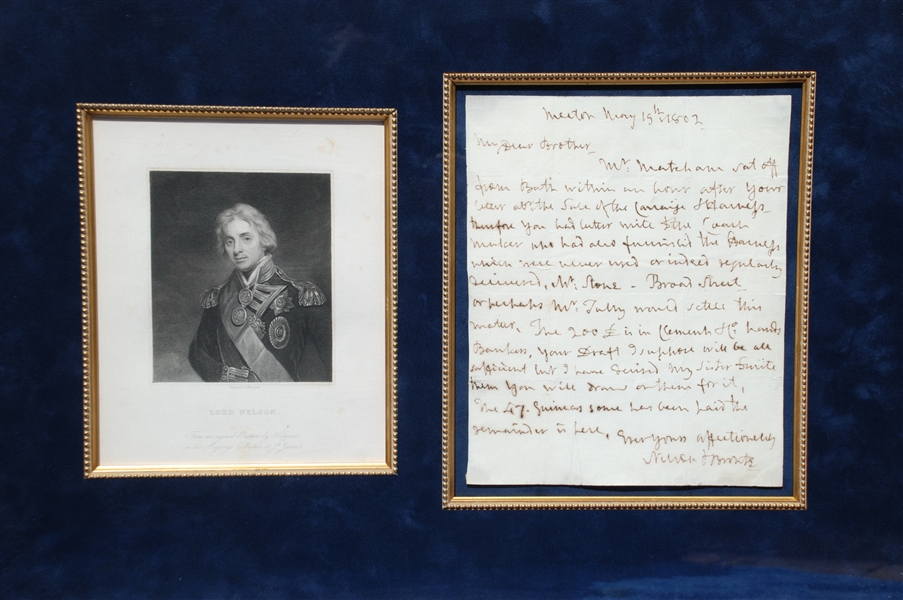 LORD NELSON.
Merton May 19th 1802
My Dear Brother
Mr. Matcham sat off
from Bath within an hour after your
letter abt. the Sale of the Carraige & Harness
therefore you had better write to the Coach
maker who had also furnished the Harness
which were never used or indeed regularly
delivered, Mr. Stone - Broad Street
or perhaps Mr. would settle this
matter. The 200 £ is in & Co. hands
Bankers, your Draft I suppose will be all
sufficient but I have desired my Sister to write
them you will draw on them for it,
The 47. Guineas some has been paid the
remainder is here. Ever yours affectionately
Nelson & Bronte